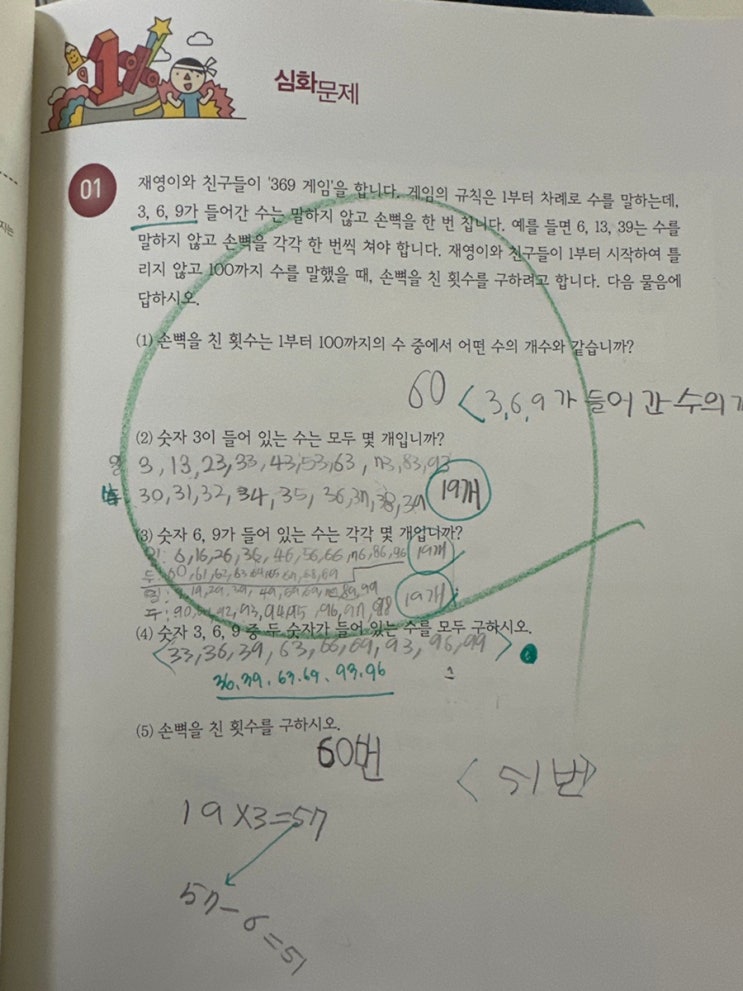 1%
심화문제
01
재영이와 친구들이 '369 게임'을 합니다. 게임의 규칙은 1부터 차례로 수를 말하는데,
3, 6, 9가 들어간 수는 말하지 않고 손뼉을 한 번 칩니다. 예를 들면 6, 13, 39는 수를
말하지 않고 손뼉을 각각 한 번씩 쳐야 합니다. 재영이와 친구들이 1부터 시작하여 틀
리지 않고 100까지 수를 말했을 때, 손뼉을 친 횟수를 구하려고 합니다. 다음 물음에
답하시오.
(1) 손뼉을 친 횟수는 1부터 100까지의 수 중에서 어떤 수의 개수와 같습니까?
60 < 3,6,9가 들어 간 수의
(2) 숫자 3이 들어 있는 수는 모두 몇 개입니까?
일 3, 13, 23, 33, 43, 53, 63, 73, 83, 93
30, 31, 32, 34, 35, 36, 37, 38, 39 19개
(3) 숫자 6, 9가 들어 있는 수는 각각 몇 개입니까?
일: 6, 16, 26, 36, 46, 56, 66, 76, 86, 96 19개
60, 61, 62, 63
19, 29, 39, 49 19개
90, 92, 93, 94, 95, 96, 97, 98
(4) 숫자 3, 6, 9 중 두 숫자가 들어 있는 수를 모두 구하시오.
<33, 36, 39, 63, 66, 69, 93, 96, 99>
36. 39. 63. 69. 93. 96
(5) 손뼉을 친 횟수를 구하시오.
60번
<51번>
19×3=57
57-6=51